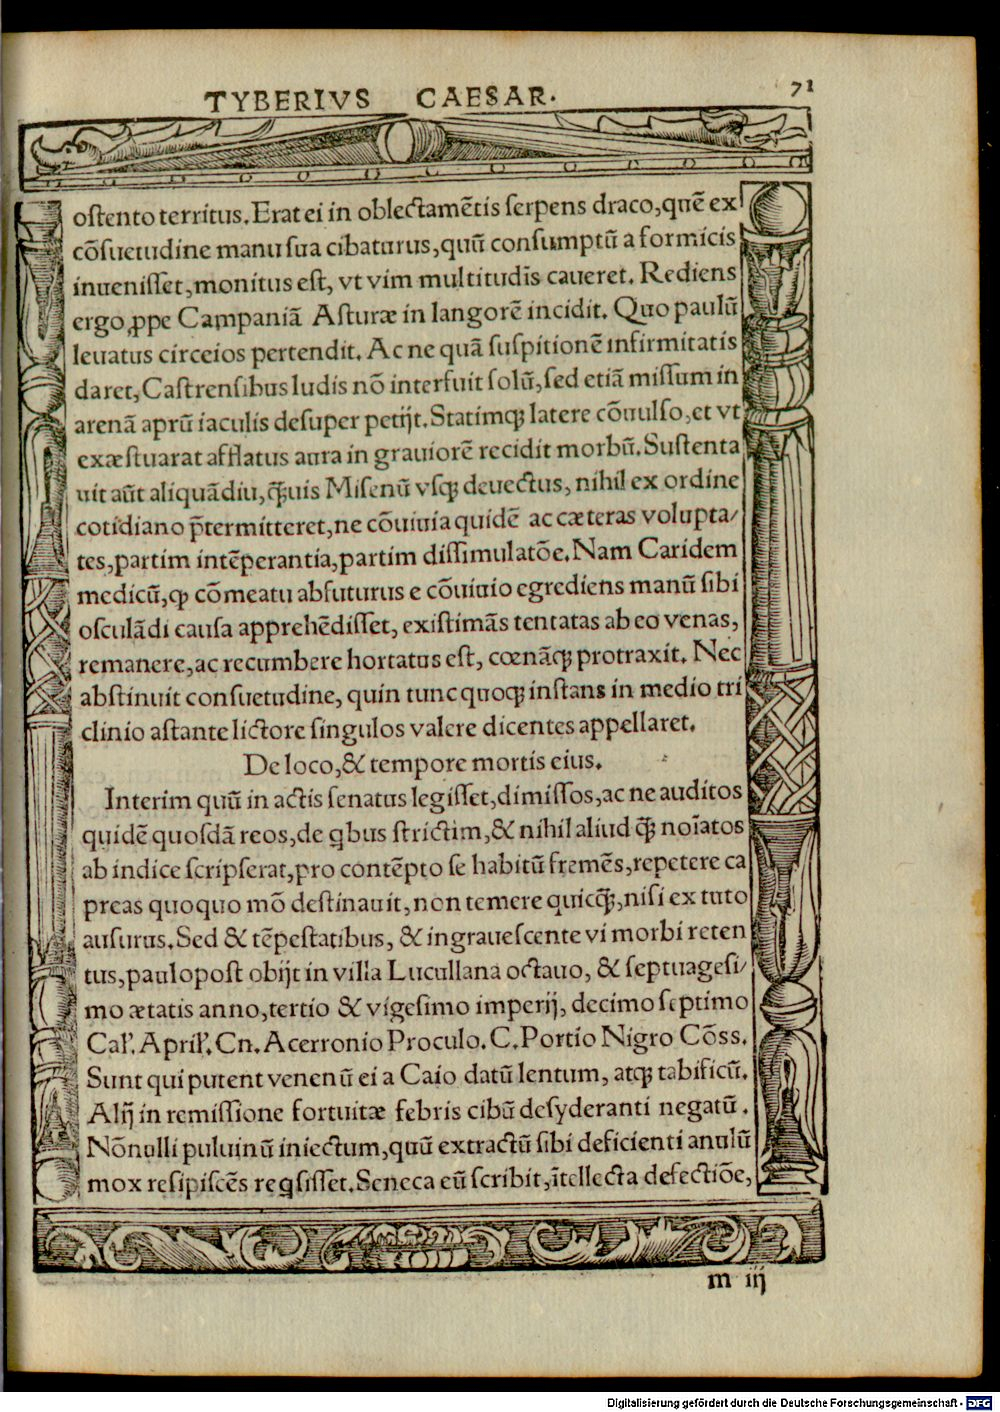 TYBERIVS CAESAR.
71
oſtento territus. Erat ei in oblectamētis ſerpens draco, quē ex
cōſuetudine manu ſua cibaturus, quū conſumptū a formicis
inueniſſet, monitus eſt, vt vim multitudīs caueret. Rediens
ergo ꝓpe Campaniā Aſturæ in langorē incidit. Quo paulū
leuatus circeios pertendit. Ac ne quā ſuſpitionē infirmitatis
daret, Caſtrenſibus ludis nō interfuit ſolū, ſed etiā miſſum in
arenā aprū iaculis deſuper petijt. Statimqꝫ latere cōuulſo, et vt
exæſtuarat afflatus aura in grauiorē recidit morbū. Suſtenta
uit aūt aliquādiu, q̄ꝫuis Miſenū vſqꝫ deuectus, nihil ex ordine
cotidiano p̄termitteret, ne cōuiuia quidē ac cæteras volupta/
tes, partim intēperantia, partim diſſimulatōe. Nam Caridem
medicū, ꝙ cōmeatu abfuturus e cōuiuio egrediens manū ſibi
oſculādi cauſa apprehēdiſſet, exiſtimās tentatas ab eo venas,
remanere, ac recumbere hortatus eſt, cœnāqꝫ protraxit. Nec
abſtinuit conſuetudine, quin tunc quoqꝫ inſtans in medio tri
clinio aſtante lictore ſingulos valere dicentes appellaret.
De loco, & tempore mortis eius.
Interim quū in actis ſenatus legiſſet, dimiſſos, ac ne auditos
quidē quoſdā reos, de ꝗbus ſtrictim, & nihil aliud q̄ꝫ noīatos
ab indice ſcripſerat, pro contēpto ſe habitū fremēs, repetere ca
preas quoquo mō deſtinauit, non temere quicq̄ꝫ, niſi ex tuto
auſurus. Sed & tēpeſtatibus, & ingraueſcente vi morbi reten
tus, paulopoſt obijt in villa Lucullana octauo, & ſeptuageſi/
mo ætatis anno, tertio & vigeſimo imperij, decimo ſeptimo
Cal'. April'. Cn. Acerronio Proculo. C. Portio Nigro Cōſſ.
Sunt qui putent venenū ei a Caio datū lentum, atqꝫ tabificū.
Alij in remiſſione fortuitæ febris cibū deſyderanti negatū.
Nōnulli puluinū iniectum, quū extractū ſibi deficienti anulū
mox reſipiſcēs reꝗſiſſet. Seneca eū ſcribit, ītellecta defectiōe,
m iij
Digitalisierung gefördert durch die Deutsche Forschungsgemeinschaft - DFG